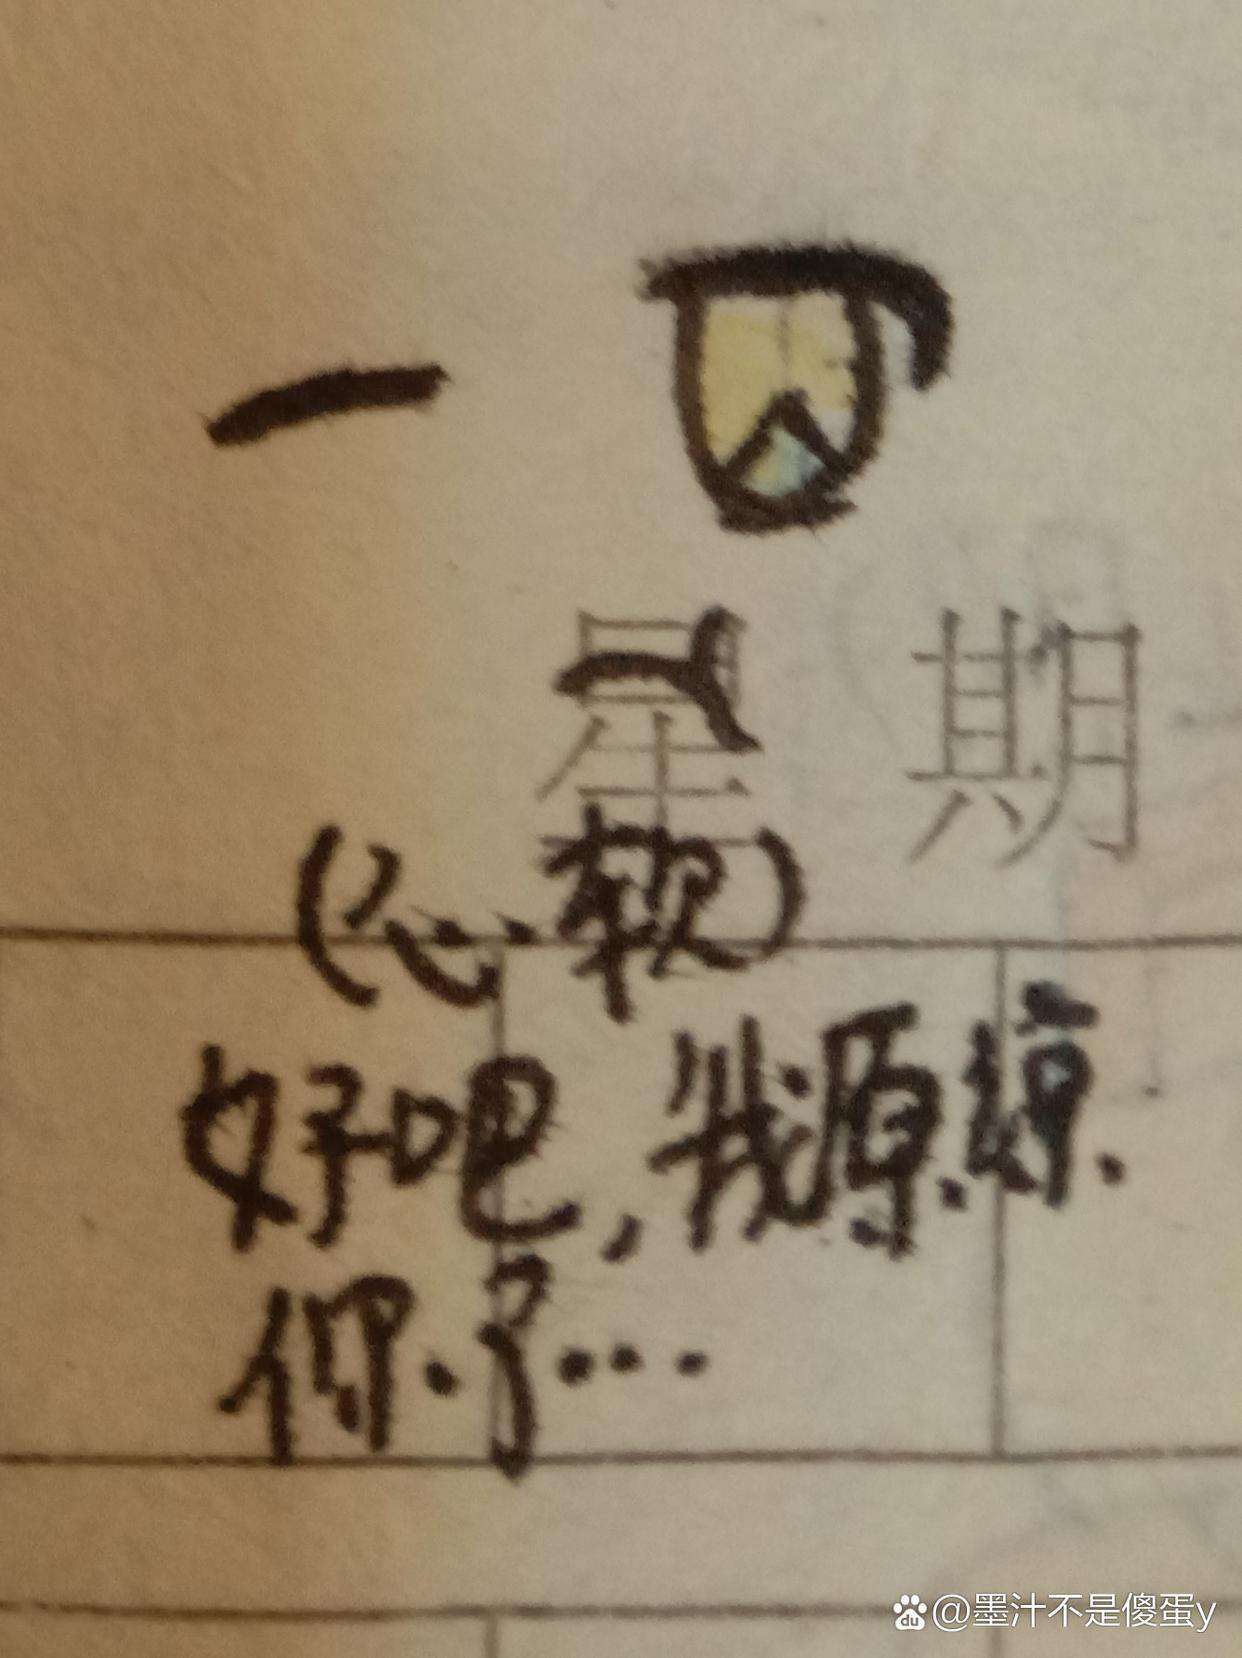 星期
(心软)
好吧,我原谅
你了…
du @墨汁不是傻蛋y